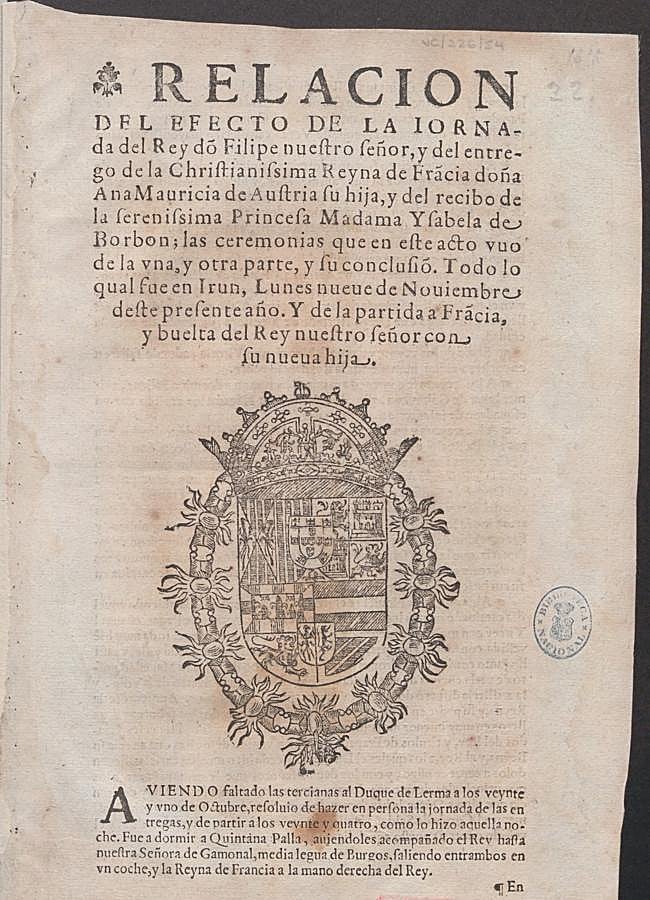 VC/226/54
22
RELACION
DEL EFECTO DE LA IORNA-
da del Rey dõ Filipe nuestro señor, y del entre-
go de la Christianissima Reyna de Frãcia doña
Ana Mauricia de Austria su hija, y del recibo de
la serenissima Princesa Madama Ysabela de
Borbon; las ceremonias que en este acto vuo
de la vna, y otra parte, y su conclusiõ. Todo lo
qual fue en Irun, Lunes nueue de Nouiembre
deste presente año. Y de la partida a Frãcia,
y buelta del Rey nuestro señor con
su nueua hija.
BIBLIOTECA NACIONAL
AVIENDO faltado las tercianas al Duque de Lerma a los veynte
y vno de Octubre, resoluio de hazer en persona la jornada de las en
tregas, y de partir a los veynte y quatro, como lo hizo aquella no-
che. Fue a dormir a Quintana Palla, auiendoles acompañado el Rey hasta
nuestra Señora de Gamonal, media legua de Burgos, saliendo entrambos en
vn coche, y la Reyna de Francia a la mano derecha del Rey.
¶ En